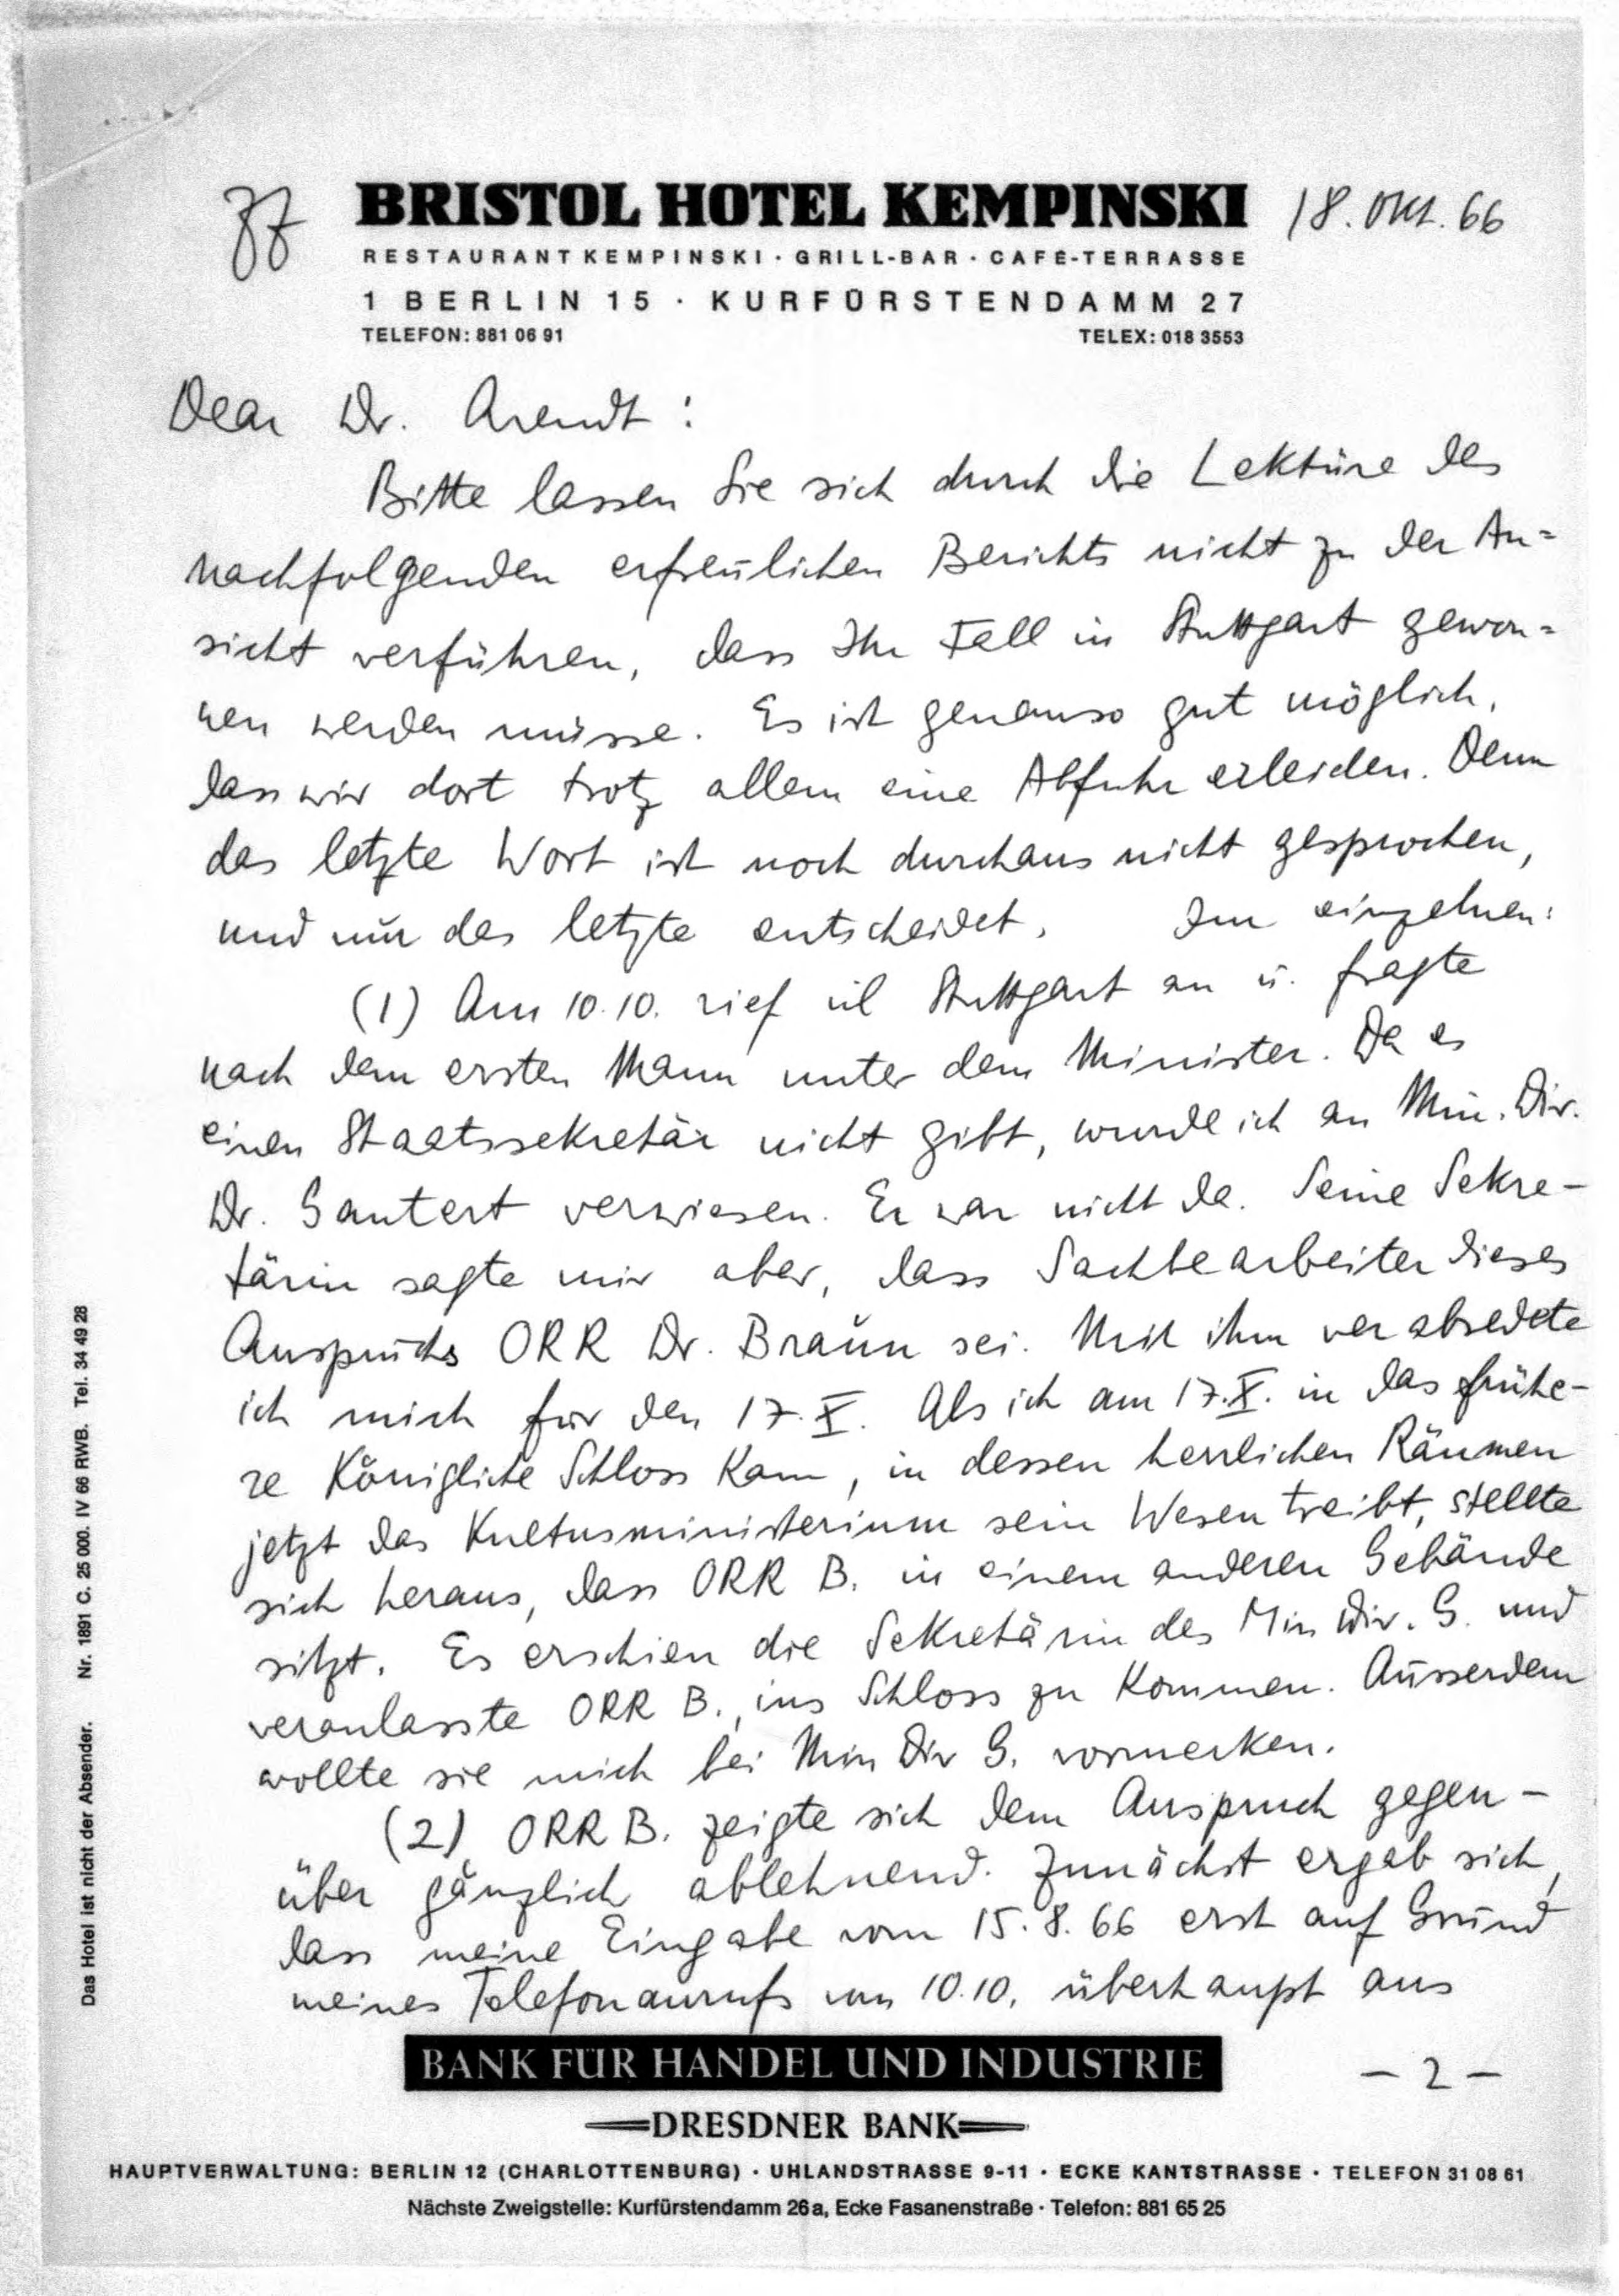 BRISTOL HOTEL KEMPINSKI 18. Okt. 66
RESTAURANT KEMPINSKI · GRILL-BAR · CAFÉ-TERRASSE
1 BERLIN 15 · KURFÜRSTENDAMM 27
TELEFON: 881 06 91 TELEX: 018 3553
Dear Dr. Arendt:
Bitte lassen Sie sich durch die Lektüre des
nachfolgenden erfreulichen Berichts nicht zu der An=
sicht verführen, dass Ihr Fall in Stuttgart gewon=
nen werden müsse. Es ist genauso gut möglich,
dass wir dort trotz allem eine Abfuhr erleiden. Denn
das letzte Wort ist noch durchaus nicht gesprochen,
und nur das letzte entscheidet. Im einzelnen:
(1) Am 10.10. rief ich Stuttgart an u. fragte
nach dem ersten Mann unter dem Minister. Da es
einen Staatssekretär nicht gibt, wurde ich an Min. Dir.
Dr. Gantert verwiesen. Er war nicht da. Seine Sekre-
tärin sagte mir aber, dass Sachbearbeiter dieses
Anspruchs ORR Dr. Braun sei. Mit ihm verabredete
ich mich für den 17.X. Als ich am 17.X. in das frühe-
re Königliche Schloss kam, in dessen herrlichen Räumen
jetzt das Kultusministerium sein Wesen treibt, stellte
sich heraus, dass ORR B. in einem anderen Gebäude
sitzt. Es erschien die Sekretärin des Min Dir. G. und
veranlasste ORR B., ins Schloss zu kommen. Ausserdem
wollte sie mich bei Min Dir G. vormerken.
(2) ORR B. zeigte sich dem Anspruch gegen-
über gänzlich ablehnend. Zunächst ergab sich,
dass meine Eingabe vom 15.8.66 erst auf Grund
meines Telefonanrufs vom 10.10. überhaupt aus
- 2 -
BANK FÜR HANDEL UND INDUSTRIE
DRESDNER BANK
HAUPTVERWALTUNG: BERLIN 12 (CHARLOTTENBURG) · UHLANDSTRASSE 9-11 · ECKE KANTSTRASSE · TELEFON 31 08 61
Nächste Zweigstelle: Kurfürstendamm 26a, Ecke Fasanenstraße · Telefon: 881 65 25
Das Hotel ist nicht der Absender. Nr. 1891 C. 25 000. IV 66 RWB. Tel. 34 49 28